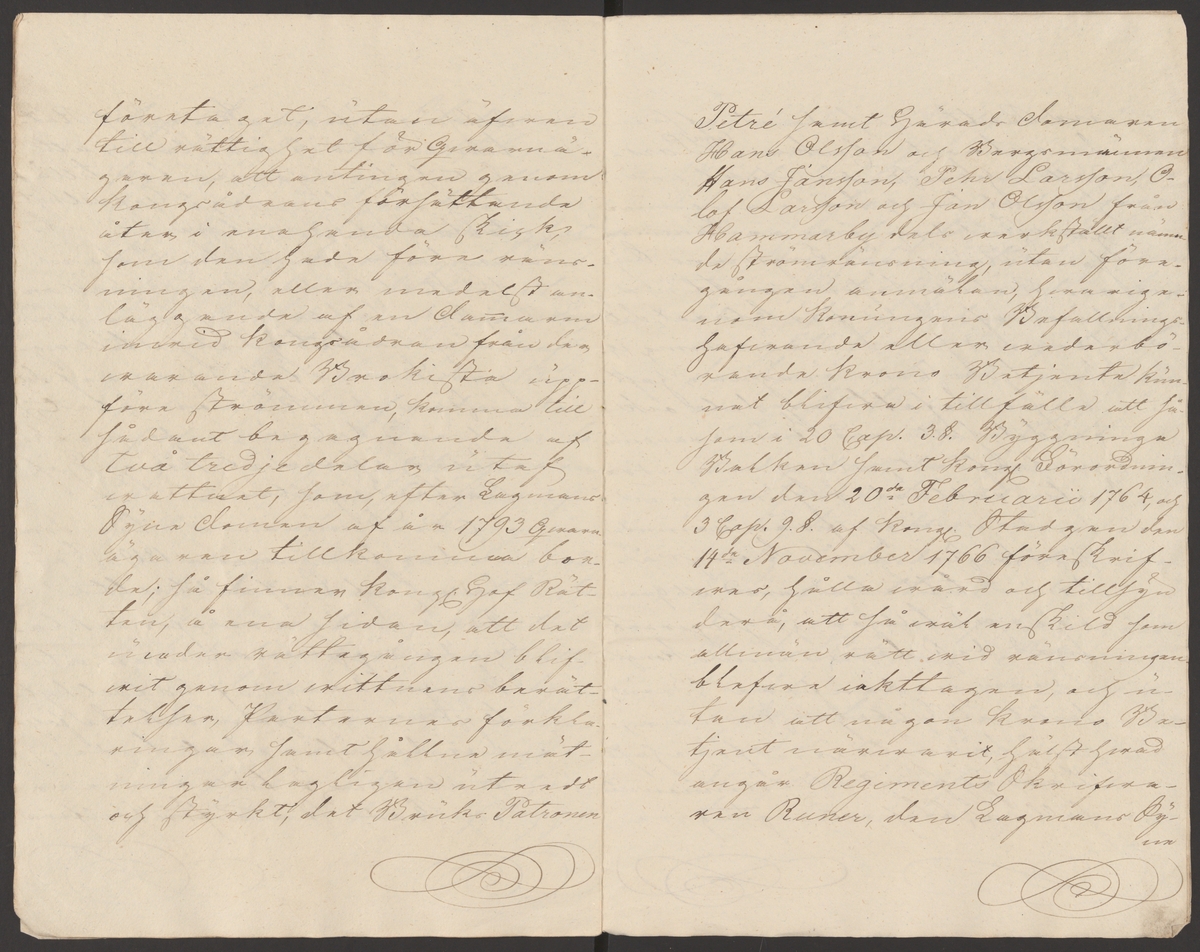 företaget, utan äfwen
till rättighet för Qwarnä-
garen, att antingen genom
Kongsådrans försättande
åter i enahanda skick,
som den hade före räns-
ningen, eller medelst an-
läggande af en damarm
inwid kongsådran från der
warande Brokista upp-
före strömmen, komma till
sådant begagnande af
två tredjedelar utaf
wattnet, som, efter Lagmans
Syne domen af år 1793 Qwarn
ägaren tillkomma bor-
de; så finner Kongl. Hof Rät-
ten, å ena sidan, att det
under rättegången blif-
wit genom wittnens berät-
telser, Parternes förkla-
ringar samt hållne mät-
ningar lagligen utredt
och styrkt, det Bruks Patronen
Petré samt Härads domaren
Hans Olsson och Bergsmännen
Hans Jansson, Pehr Larsson, O-
lof Larsson och Jan Olsson från
Hammarby dels werkställt nämn
de strömränsning, utan före-
gången anmälan, hwarige-
nom Konungens Befallnings-
hafwande eller wederbö-
rande Krono Betjente kun-
nat blifwa i tillfälle att så-
som i 20 Cap. 3.§. Byggninga
Balken samt Kongl. Förordnin-
gen den 20de Februarii 1764, och
3 Cap. 9.§. af Kongl. Stadgen den
14de November 1766 föreskrif-
wes, hålla wård och tillsyn
derå, att så wäl enskild som
allmän rätt wid ränsningen
blefwe iakttagen, och u-
tan att någon Krono Be-
tjent närwarit, hälst hwad
angår Regiments Skrifwa-
ren Runer, den Lagmans Sy-
ne